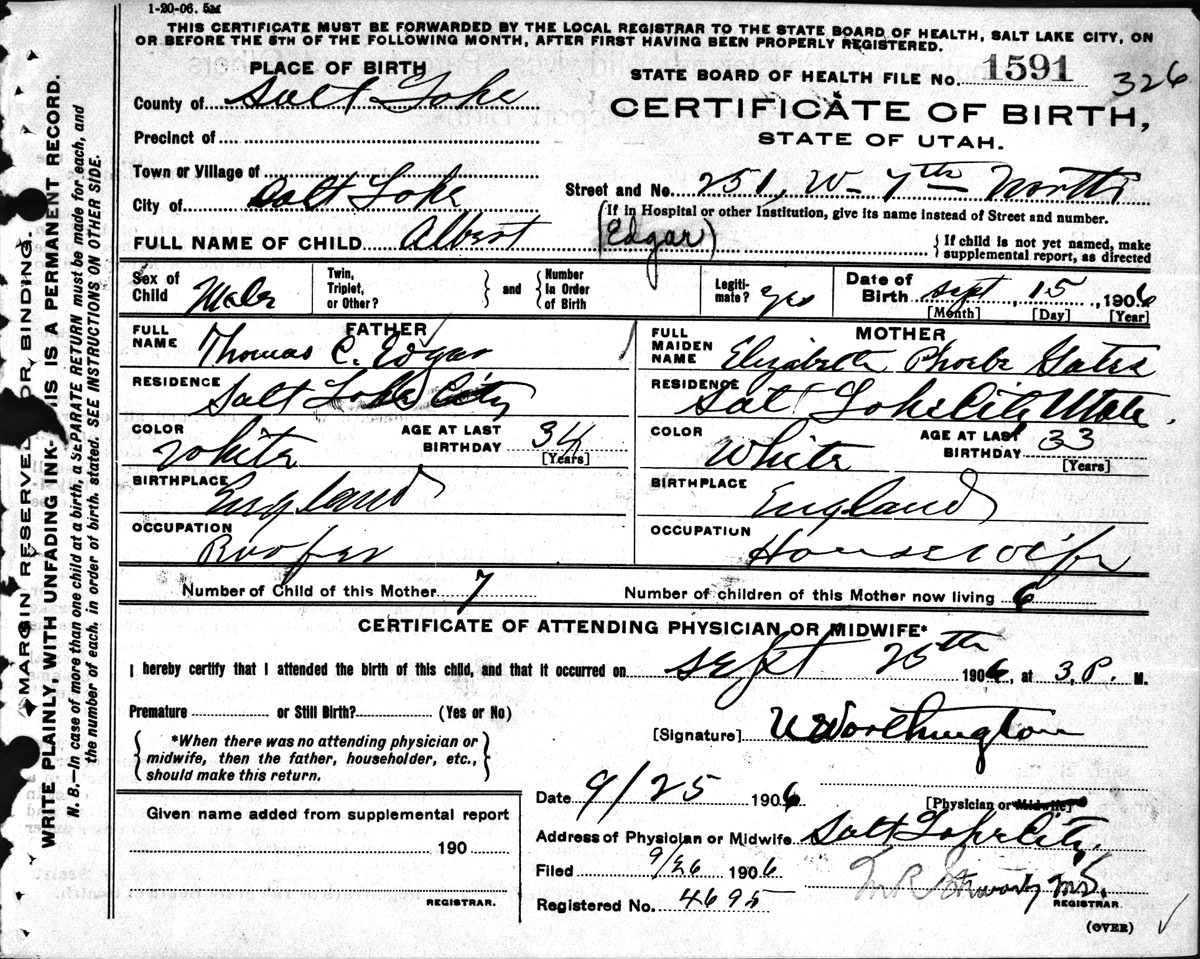 1-20-06. 5M
THIS CERTIFICATE MUST BE FORWARDED BY THE LOCAL REGISTRAR TO THE STATE BOARD OF HEALTH, SALT LAKE CITY, ON
OR BEFORE THE 5TH OF THE FOLLOWING MONTH, AFTER FIRST HAVING BEEN PROPERLY REGISTERED.
PLACE OF BIRTH
STATE BOARD OF HEALTH FILE No. 1591 326
County of Salt Lake
CERTIFICATE OF BIRTH,
Precinct of
STATE OF UTAH.
Town or Village of
Street and No. 251, W - 7th North
City of Salt Lake
(If in Hospital or other Institution, give its name instead of Street and number.
FULL NAME OF CHILD Albert (Edgar)
{ If child is not yet named, make
supplemental report, as directed
Sex of Child Male
Twin, Triplet, or Other? } and { Number In Order of Birth
Legitimate? yes
Date of Birth Sept, 15, 1906
[Month] [Day] [Year]
FATHER
FULL NAME Thomas C. Edgar
RESIDENCE Salt Lake City
COLOR White
AGE AT LAST BIRTHDAY 34
[Years]
BIRTHPLACE England
OCCUPATION Roofer
MOTHER
FULL MAIDEN NAME Elizabeth Phoebe Gates
RESIDENCE Salt Lake City Utah.
COLOR White
AGE AT LAST BIRTHDAY 33
[Years]
BIRTHPLACE England
OCCUPATION Housewife
Number of Child of this Mother 7
Number of children of this Mother now living 6
CERTIFICATE OF ATTENDING PHYSICIAN OR MIDWIFE*
I hereby certify that I attended the birth of this child, and that it occurred on Sept 25th 1906, at 3, P. M.
Premature or Still Birth? (Yes or No)
{ *When there was no attending physician or
midwife, then the father, householder, etc.,
should make this return. }
[Signature] Worthington
Date 9/25 1906
[Physician or Midwife]
Address of Physician or Midwife Salt Lake City.
Filed 9/26 1906
REGISTRAR.
Registered No. 4695
(OVER)
Given name added from supplemental report
190
REGISTRAR.
MARGIN RESERVED FOR BINDING.
WRITE PLAINLY, WITH UNFADING INK—THIS IS A PERMANENT RECORD.
N. B.—In case of more than one child at a birth, a SEPARATE RETURN must be made for each, and
the number of each, in order of birth, stated. SEE INSTRUCTIONS ON OTHER SIDE.